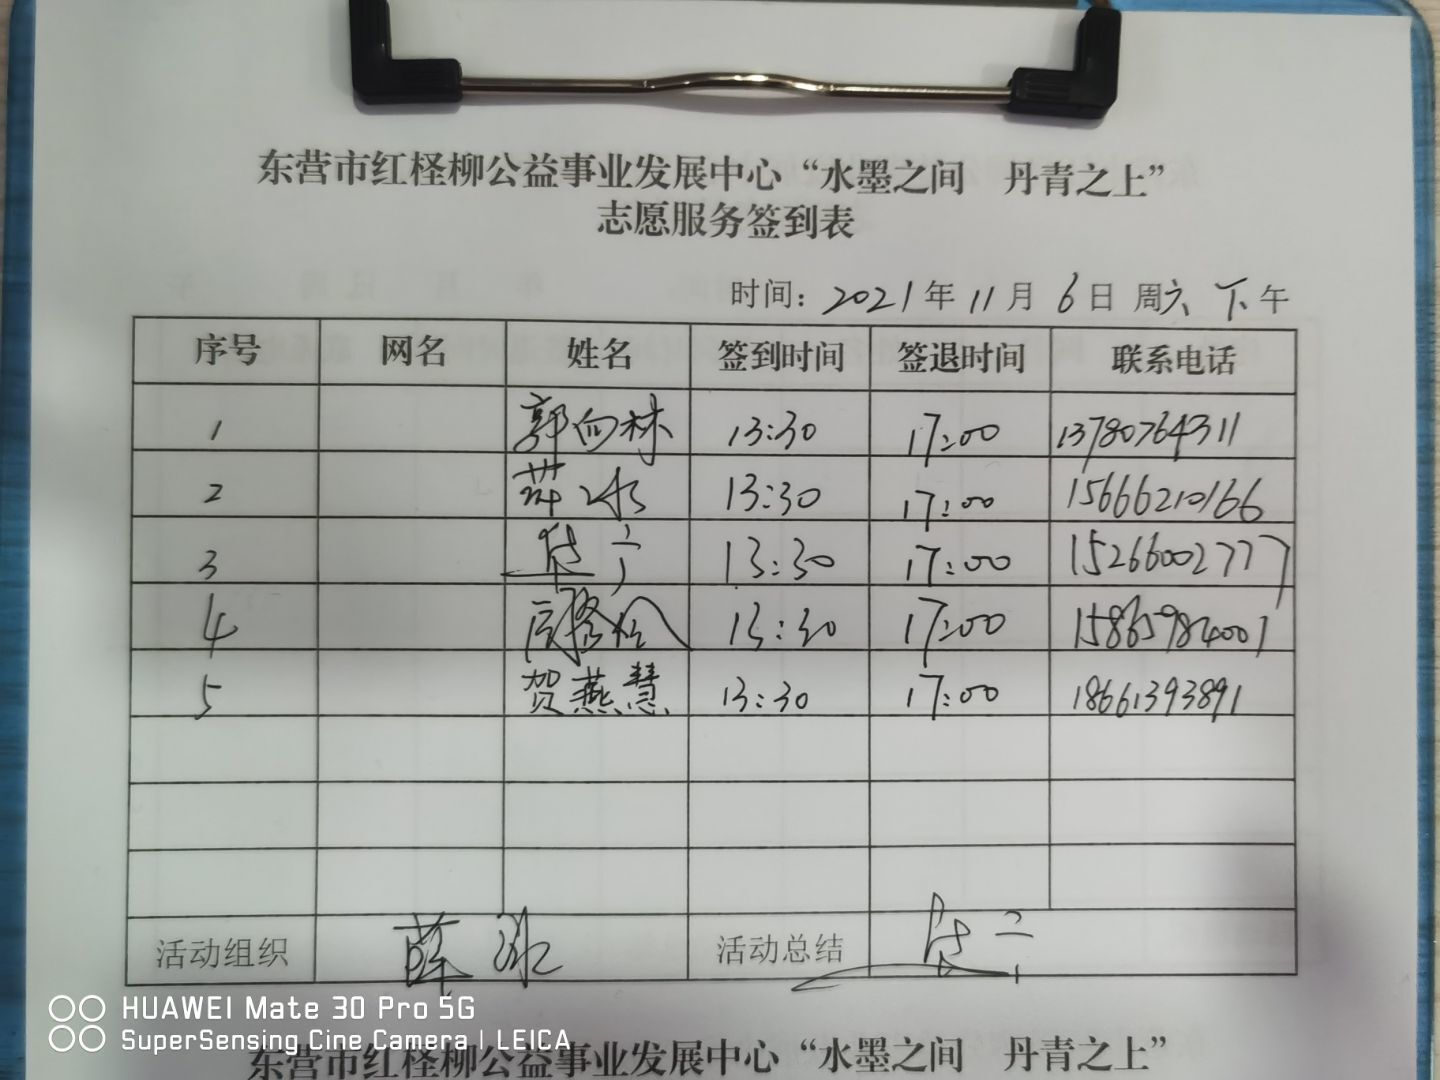 东营市红柽柳公益事业发展中心“水墨之间 丹青之上”
志愿服务签到表
时间：2021年11月6日 周六 下午
序号 网名 姓名 签到时间 签退时间 联系电话
1 郭向林 13:30 17:00 13780764311
2 薛冰 13:30 17:00 15666210166
3 13:30 17:00 15266002777
4 13:30 17:00 15865984001
5 贺燕慧 13:30 17:00 18661393891
活动组织 薛冰 活动总结
HUAWEI Mate 30 Pro 5G
SuperSensing Cine Camera | LEICA
东营市红柽柳公益事业发展中心“水墨之间 丹青之上”